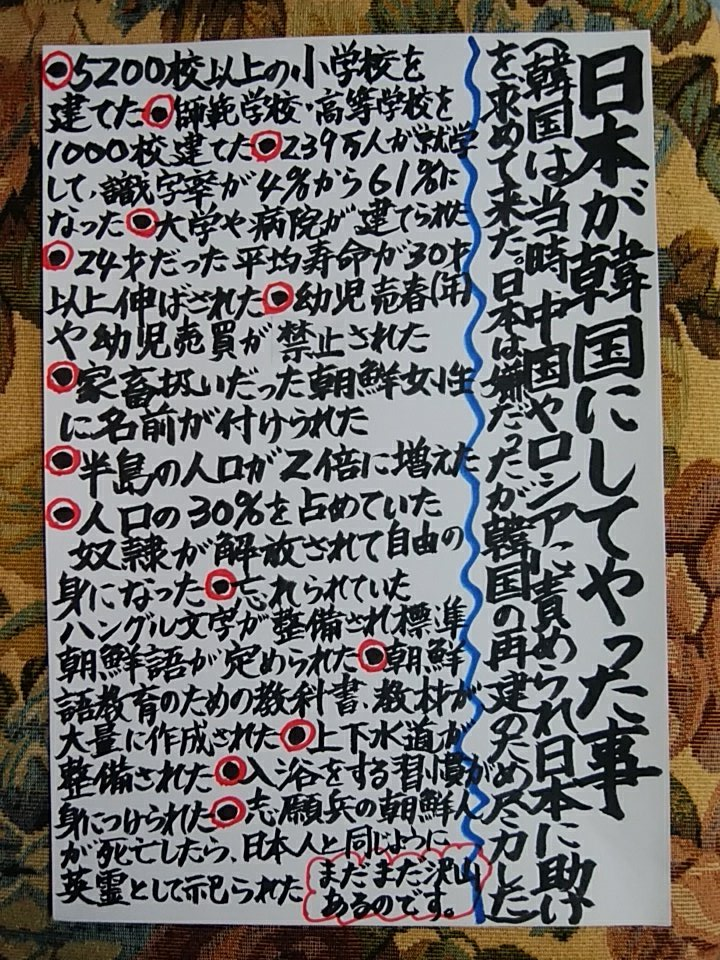 日本が韓国にしてやった事
(韓国は当時、中国やロシアに責められ日本に助け
を求めて来た。日本は嫌だったが韓国の再建のため尽力した)
●5200校以上の小学校を
建てた●師範学校・高等学校を
1000校建てた●239万人が就学
して、識字率が4%から61%に
なった●大学や病院が建てられた
●24才だった平均寿命が30才
以上伸ばされた●幼児売春(年)
や幼児売買が禁止された
●家畜扱いだった朝鮮女性
に名前が付けられた
●半島の人口が2倍に増えた
●人口の30%を占めていた
奴隷が解放されて自由の
身になった●忘れられていた
ハングル文字が整備され標準
朝鮮語が定められた●朝鮮
語教育のための教科書、教材が
大量に作成された●上下水道が
整備された●入浴をする習慣が
身につけられた●志願兵の朝鮮人
が死亡したら、日本人と同じように
英霊として祀られた
まだまだ沢山
あるのです。